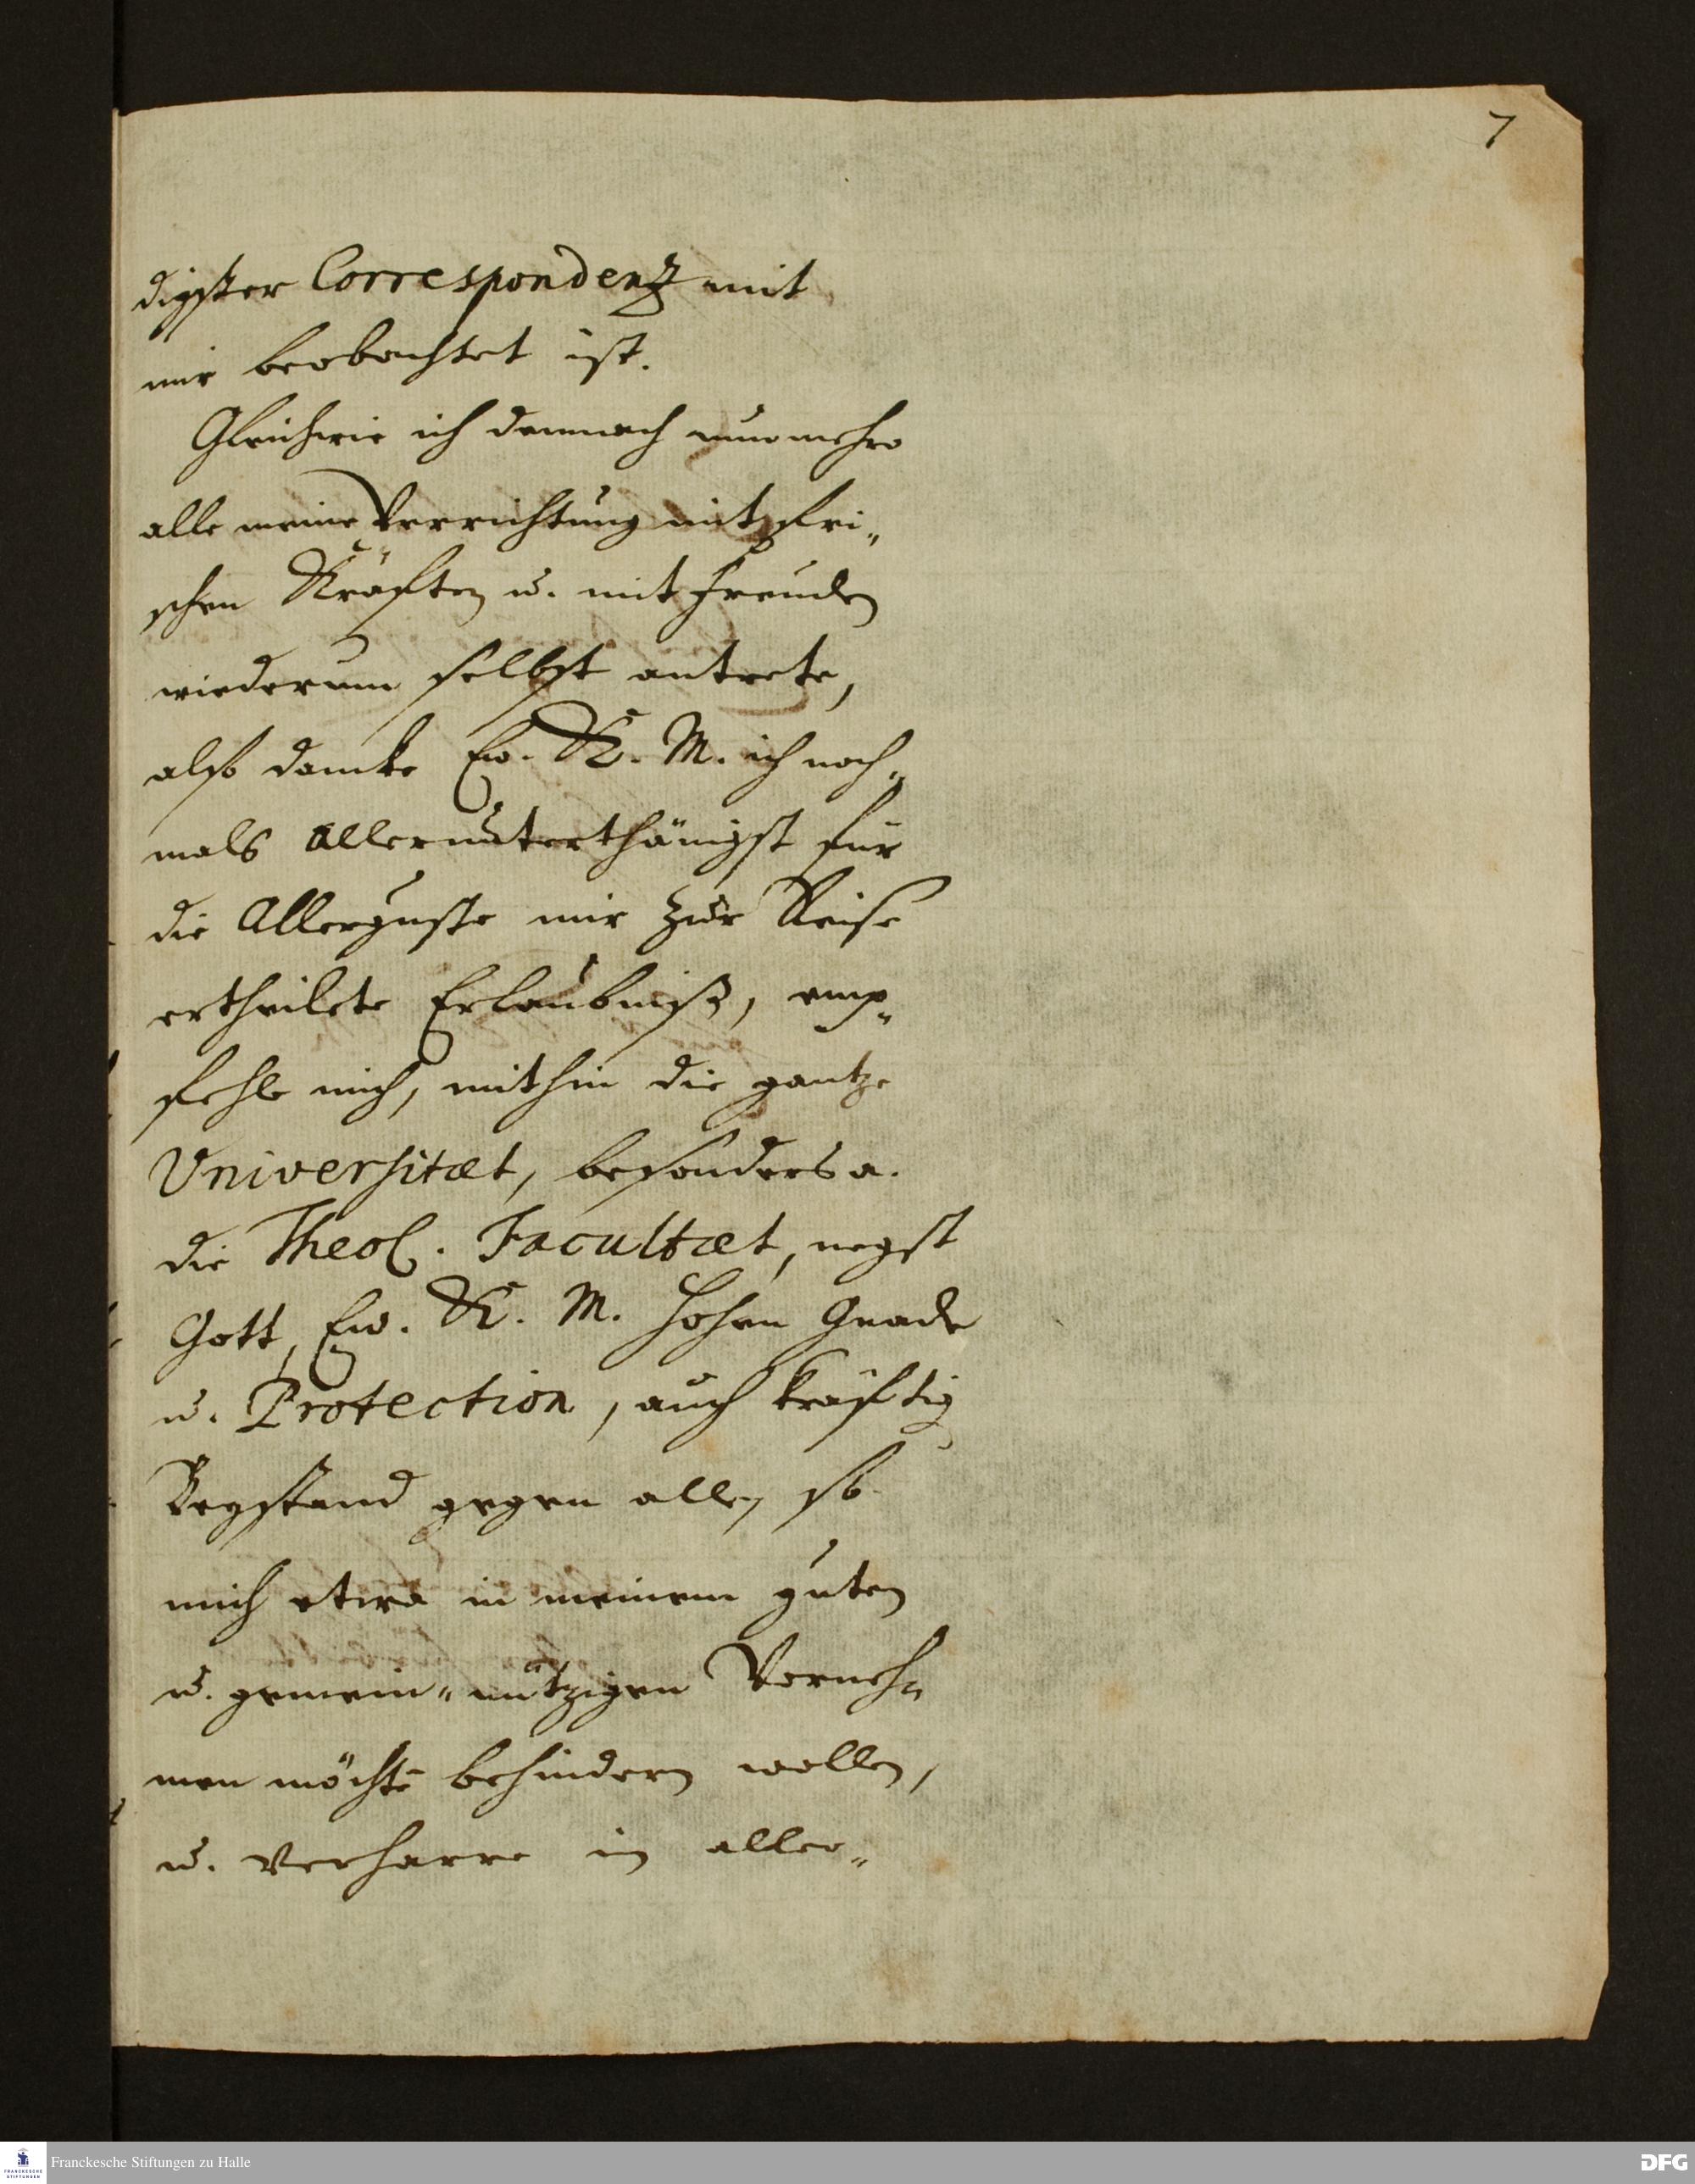 7
digster Correspondentz mit
mir beobachtet ist.
Gleichwie ich demnach nunmehro
alle meine Verrichtung mit fri„
schen Kräften u. mit Freuden
wiederum selbst antrete,
also dancke Ew. K. M. ich noch„
mals allerunterthänigst für
die Allergnste mir zur Reise
ertheilete Erlaubniß, emp„
fehle mich, mithin die gantze
Universitæt, besonders a.
die Theol. Facultæt, negst
Gott, Ew. K. M. Hohen Gnade
u. Protection, auch kräftig
Beystand gegen alle, so
mich etwa in meinem guten
u. gemein„nützigen Verneh„
men möchte behindern wollen,
u. verharre in aller„
Franckesche Stiftungen zu Halle
FRANCKESCHE
STIFTUNGEN
DFG